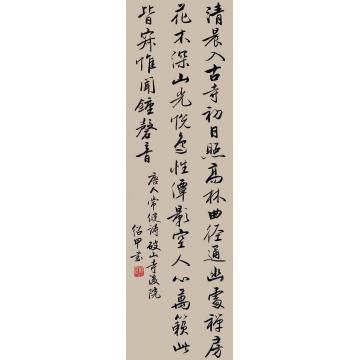 清晨入古寺初日照高林曲径通幽處禅房
花木深山光悦鸟性潭影空人心萬籁此
皆寂惟闻鍾磬音
唐人常健诗破山寺後院
绍甲书